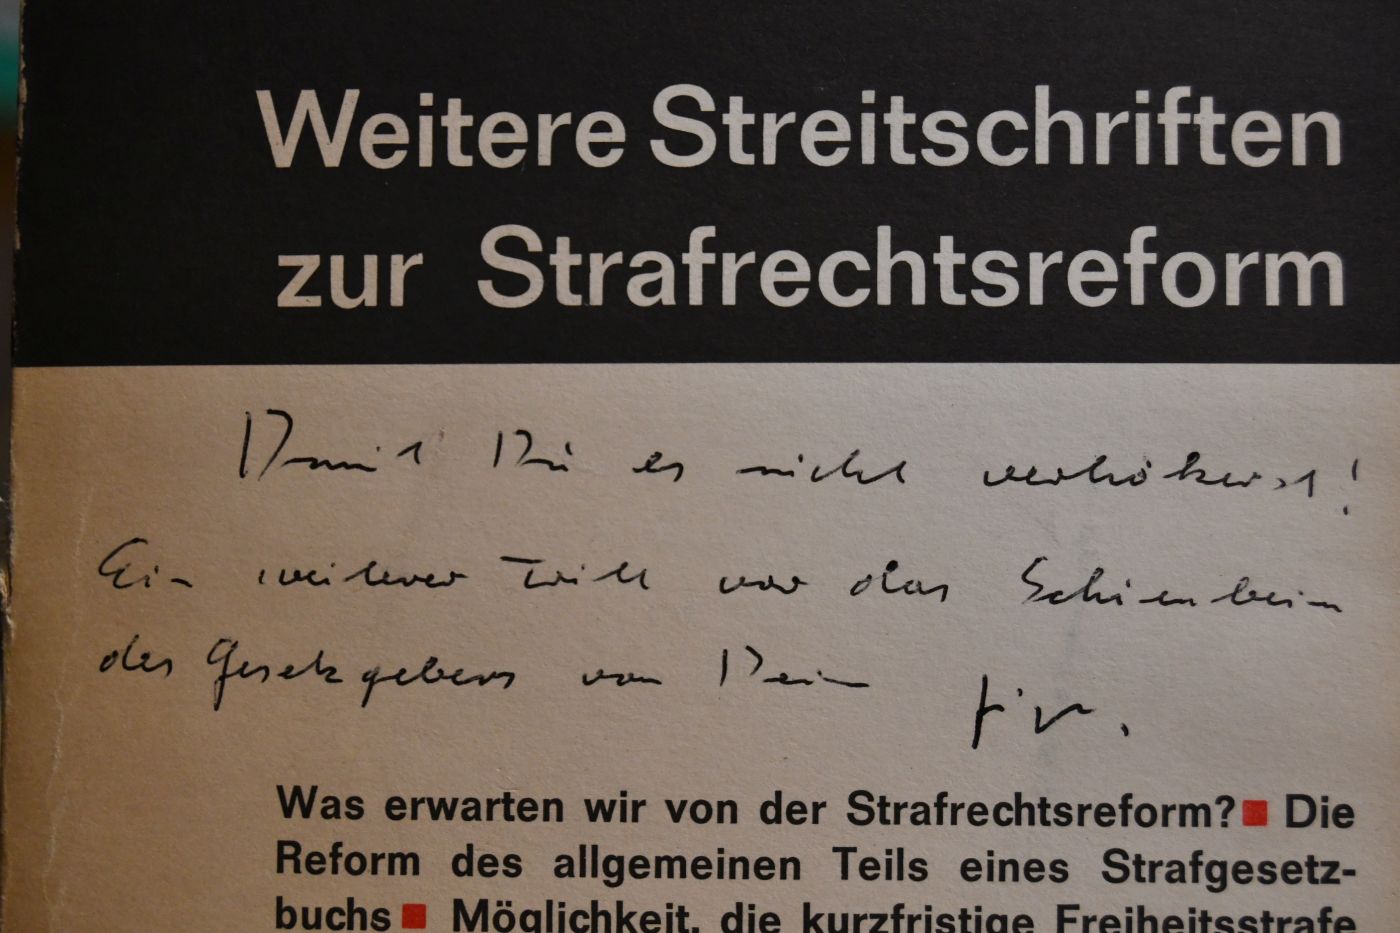 Weitere Streitschriften
zur Strafrechtsreform
Damit Du es nicht verhökerst!
Ein weiterer Tritt vor das Schienbein
des Gesetzgebers von Dein
Was erwarten wir von der Strafrechtsreform? ■ Die
Reform des allgemeinen Teils eines Strafgesetz-
buchs ■ Möglichkeit, die kurzfristige Freiheitsstrafe